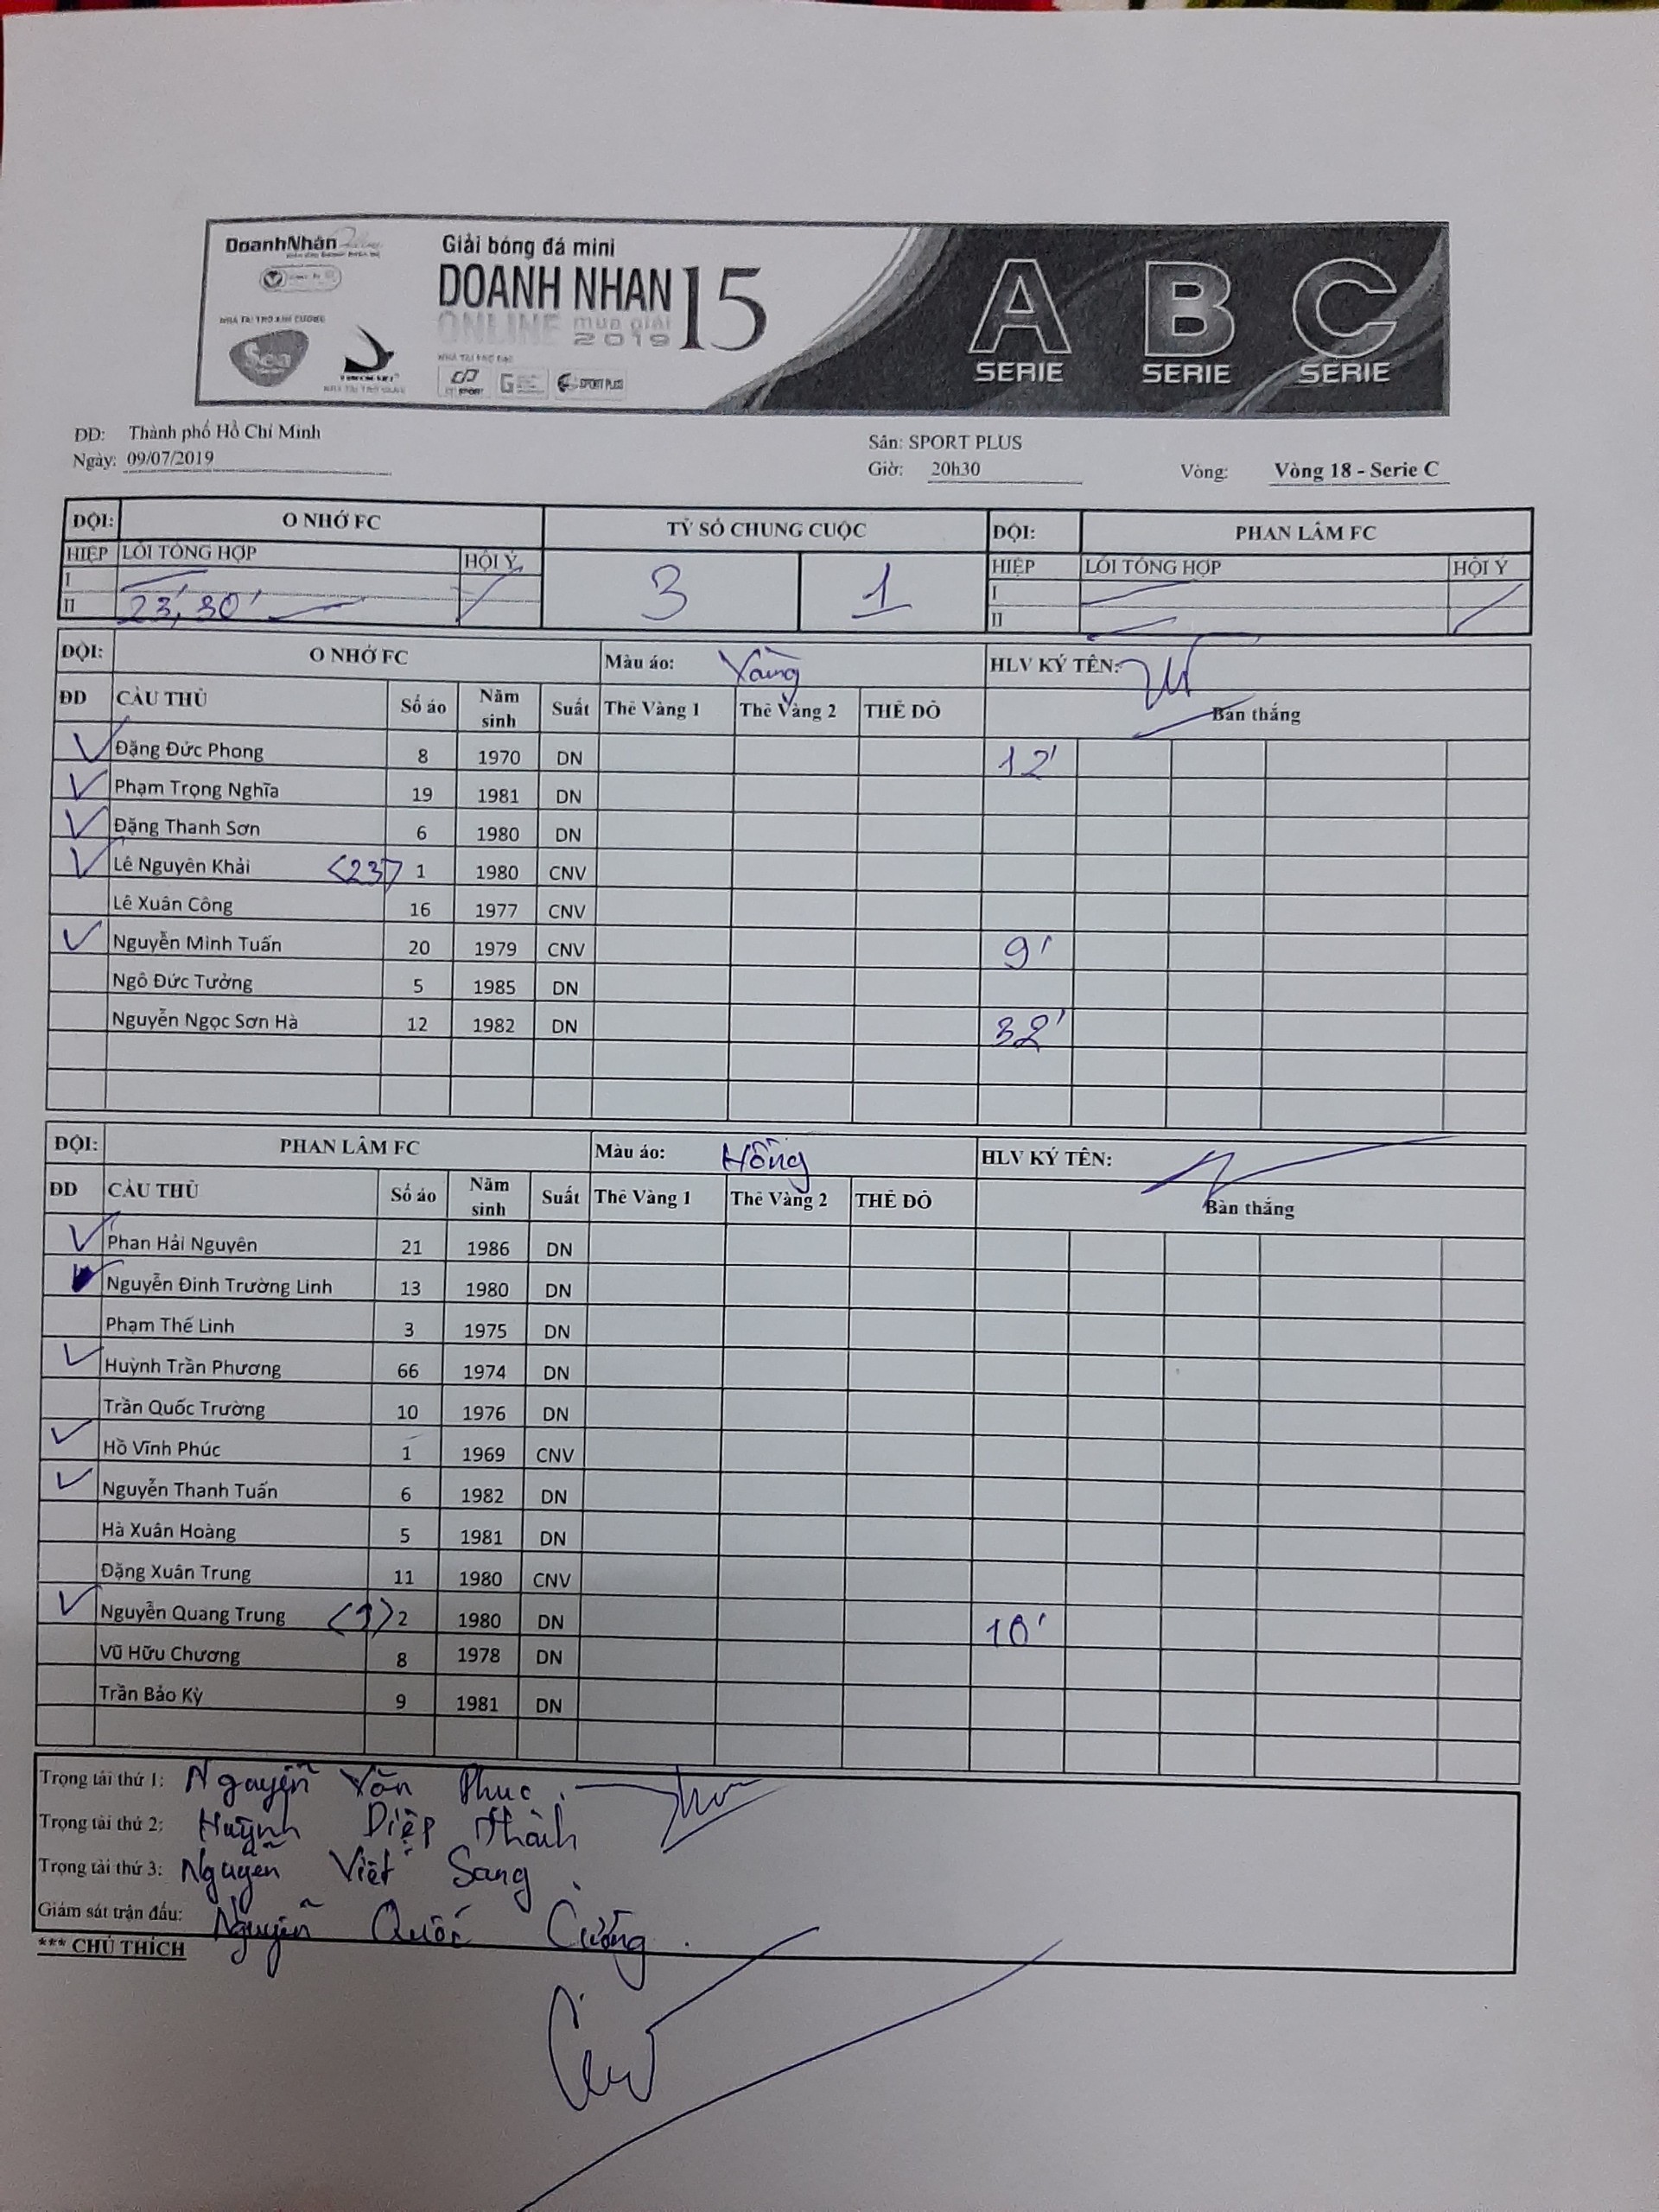 DoanhNhân
Giải bóng đá mini
DOANH NHAN 15
ONLINE mùa giải 2019
NHÀ TÀI TRỢ KIM CƯƠNG
Sea
SPORT PLUS
A SERIE B SERIE C SERIE
ĐD: Thành phố Hồ Chí Minh
Sân: SPORT PLUS
Ngày: 09/07/2019 Giờ: 20h30 Vòng: Vòng 18 - Serie C
ĐỘI: O NHỚ FC TỶ SỐ CHUNG CUỘC ĐỘI: PHAN LÂM FC
HIỆP LỖI TỔNG HỢP HỘI Ý 3 1 HIỆP LỖI TỔNG HỢP HỘI Ý
I I
II 23', 30' II
ĐỘI: O NHỚ FC Màu áo: Vàng HLV KÝ TÊN:
ĐD CẦU THỦ Số áo Năm sinh Suất Thẻ Vàng 1 Thẻ Vàng 2 THẺ ĐỎ Bàn thắng
Đặng Đức Phong 8 1970 DN 12'
Phạm Trọng Nghĩa 19 1981 DN
Đặng Thanh Sơn 6 1980 DN
Lê Nguyên Khải <23> 1 1980 CNV
Lê Xuân Công 16 1977 CNV
Nguyễn Minh Tuấn 20 1979 CNV 9'
Ngô Đức Tưởng 5 1985 DN
Nguyễn Ngọc Sơn Hà 12 1982 DN 32'
ĐỘI: PHAN LÂM FC Màu áo: Hồng HLV KÝ TÊN:
ĐD CẦU THỦ Số áo Năm sinh Suất Thẻ Vàng 1 Thẻ Vàng 2 THẺ ĐỎ Bàn thắng
Phan Hải Nguyên 21 1986 DN
Nguyễn Đinh Trường Linh 13 1980 DN
Phạm Thế Linh 3 1975 DN
Huỳnh Trần Phương 66 1974 DN
Trần Quốc Trường 10 1976 DN
Hồ Vĩnh Phúc 1 1969 CNV
Nguyễn Thanh Tuấn 6 1982 DN
Hà Xuân Hoàng 5 1981 DN
Đặng Xuân Trung 11 1980 CNV
Nguyễn Quang Trung 2 1980 DN 10'
Vũ Hữu Chương 8 1978 DN
Trần Bảo Kỳ 9 1981 DN
Trọng tài thứ 1: Nguyễn Văn Phuc.
Trọng tài thứ 2: Huỳnh Diệp Thành
Trọng tài thứ 3: Nguyễn Viết Sang
Giám sát trận đấu: Nguyễn Quốc Cường.
*** CHÚ THÍCH